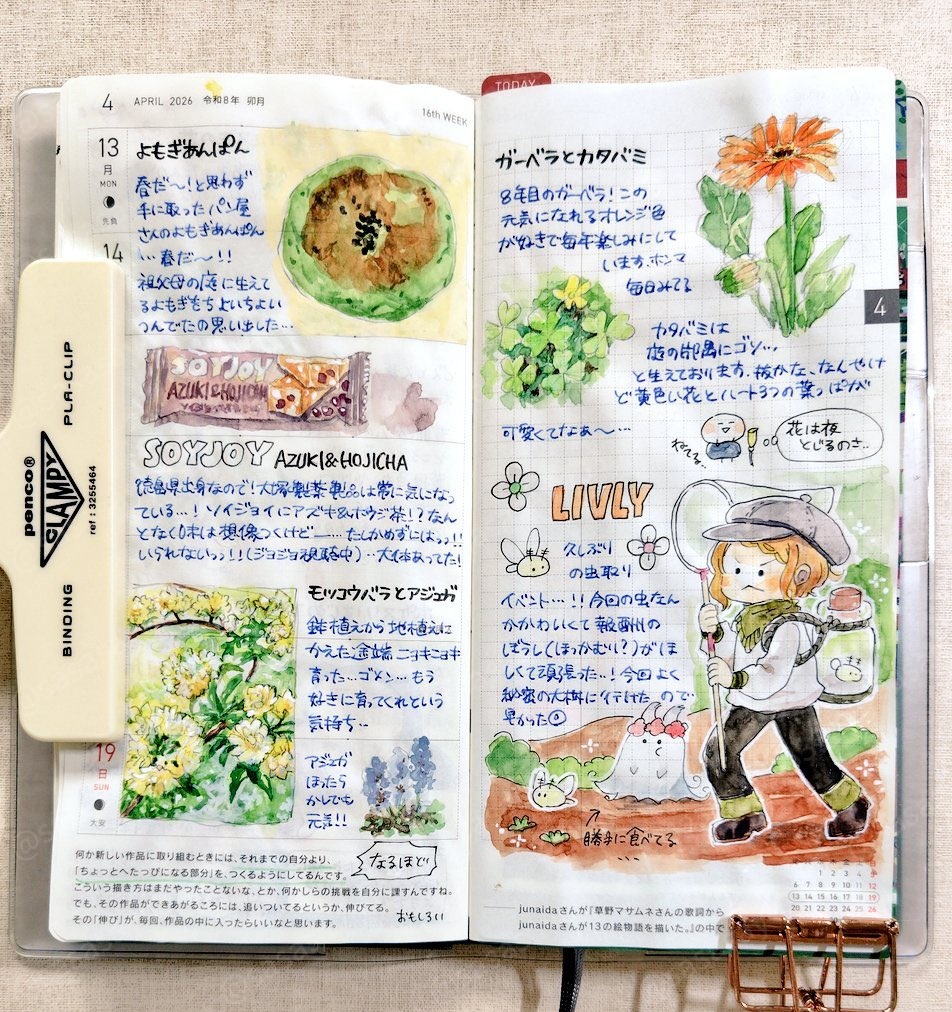 4 APRIL 2026 令和8年 卯月
16th WEEK
13
月
MON
先負
14
よもぎあんぱん
春だ〜!と思わず
手に取ったパン屋
さんのよもぎあんぱん
…春だ〜!!
祖父母の庭に生えて
るよもぎをちょいちょい
つんでたの思い出した…
SOYJOY
AZUKI&HOJICHA
SOYJOY AZUKI&HOJICHA
徳島県出身なので!大塚製薬製品は常に気になっ
ている…!ソイジョイにアズキ&ホウジ茶!?なん
となく味は想像つくけど…たしかめずにはっっ!!
いられないっっ!!(ジョジョ視聴中)…大体あってた!
モッコウバラとアジュガ
鉢植えから地植えに
かえた途端ニョキニョキ
育った…ゴメン…もう
好きに育ってくれという
気持ち…
19
日
SUN
大安
アジュガ
ほったら
かしでも
元気!!
何か新しい作品に取り組むときには、それまでの自分より、
「ちょっとへたっぴになる部分」を、つくるようにしてるんです。
こういう描き方はまだやったことないな、とか、何かしらの挑戦を自分に課すんですね。
でも、その作品ができあがるころには、追いついてるというか、伸びてる。
その「伸び」が、毎回、作品の中に入ったらいいなと思います。
なるほど
おもしろい
PLA-CLIP
penco®
CLAMPY
ref : 3255464
BINDING
TODAY
ガーベラとカタバミ
8年目のガーベラ!この
元気になれるオレンジ色
が好きで毎年楽しみにして
います。ホンマ
毎日みてる
4
カタバミは
庭の部隅にゴソ…
と生えております。抜かな、なんやけ
ど黄色い花とハート3つの葉っぱが
可愛くてなぁ〜…
ねてる…
花は夜
とじるのさ…
LIVLY
久しぶり
の虫取り
イベント…!!今回の虫なん
かかわいくて報酬の
ぼうし(ほっかむり?)がほ
しくて頑張った…!今回よく
秘密の大樹に行けたので
早かった
勝手に食べてる
…
1 2 3 4 5
6 7 8 9 10 11 12
13 14 15 16 17 18 19
20 21 22 23 24 25 26
junaidaさんが『草野マサムネさんの歌詞から
junaidaさんが13の絵物語を描いた。』の中で